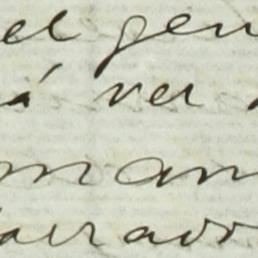 el gen
á ver
man